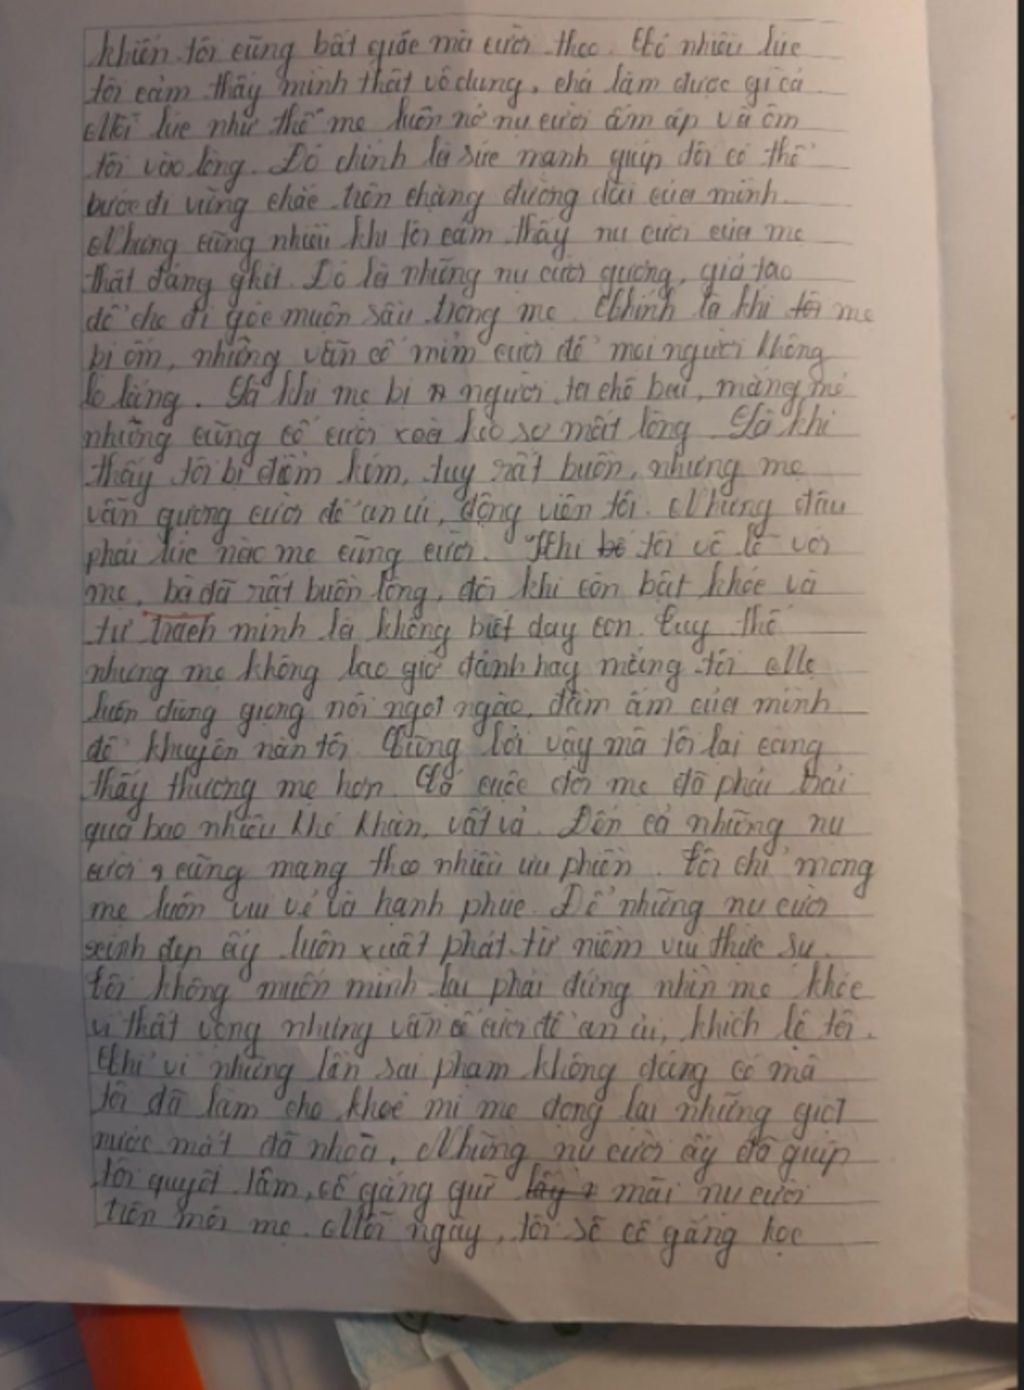 khiến tôi cũng bất giác mà cười theo. Có nhiều lúc
tôi cảm thấy mình thật vô dụng, chả làm được gì cả
Mỗi lúc như thế mẹ luôn nở nụ cười ấm áp và ôm
tôi vào lòng. Đó chính là sức mạnh giúp tôi có thể
bước đi vững chắc trên chặng đường dài của mình.
Nhưng cũng nhiều khi tôi cảm thấy nụ cười của mẹ
thật đáng ghét. Đó là những nụ cười gượng, giả tạo
để che đi góc muộn sầu trong mẹ. Chính là khi mẹ
bị ốm, nhưng vẫn cố mỉm cười để mọi người không
lo lắng. Là khi mẹ bị người ta chê bai, mắng mỏ
nhưng cũng cố cười xoà kẻo sợ mất lòng. Là khi
thấy tôi bị điểm kém, tuy rất buồn, nhưng mẹ
vẫn gượng cười để an ủi, động viên tôi. Nhưng đâu
phải lúc nào mẹ cũng cười. Khi tôi vô lễ với
mẹ, bà đã rất buồn lòng, đôi khi còn bật khóc và
tự trách mình là không biết dạy con. Tuy thế
nhưng mẹ không bao giờ đánh hay mắng tôi. Mẹ
luôn dùng giọng nói ngọt ngào, đầm ấm của mình
để khuyên răn tôi. Cũng bởi vậy mà tôi lại càng
thấy thương mẹ hơn. Cả cuộc đời mẹ đã phải trải
qua bao nhiêu khó khăn, vất vả. Đến cả những nụ
cười cũng mang theo nhiều ưu phiền. Tôi chỉ mong
mẹ luôn vui vẻ và hạnh phúc. Để những nụ cười
xinh đẹp ấy luôn xuất phát từ niềm vui thực sự.
Tôi không muốn mình lại phải đứng nhìn mẹ khóc
vì thất vọng nhưng vẫn cố cười để an ủi, khích lệ tôi.
Chỉ vì những lần sai phạm không đáng có mà
tôi đã làm cho khoé mi mẹ đọng lại những giọt
nước mắt đã nhoà. Những nụ cười ấy đã giúp
tôi quyết tâm, cố gắng giữ mãi nụ cười
trên môi mẹ. Mỗi ngày, tôi sẽ cố gắng học